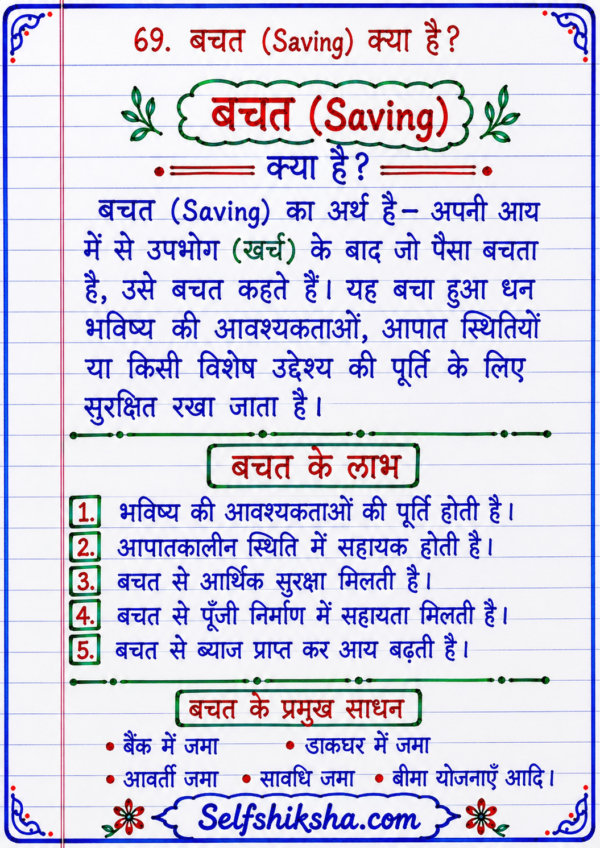 69. बचत (Saving) क्या है?
बचत (Saving)
क्या है?
बचत (Saving) का अर्थ है – अपनी आय
में से उपभोग (खर्च) के बाद जो पैसा बचता
है, उसे बचत कहते हैं। यह बचा हुआ धन
भविष्य की आवश्यकताओं, आपात स्थितियों
या किसी विशेष उद्देश्य की पूर्ति के लिए
सुरक्षित रखा जाता है।
बचत के लाभ
1. भविष्य की आवश्यकताओं की पूर्ति होती है।
2. आपातकालीन स्थिति में सहायक होती है।
3. बचत से आर्थिक सुरक्षा मिलती है।
4. बचत से पूँजी निर्माण में सहायता मिलती है।
5. बचत से ब्याज प्राप्त कर आय बढ़ती है।
बचत के प्रमुख साधन
• बैंक में जमा • डाकघर में जमा
• आवर्ती जमा • सावधि जमा • बीमा योजनाएँ आदि।
Selfshiksha.com